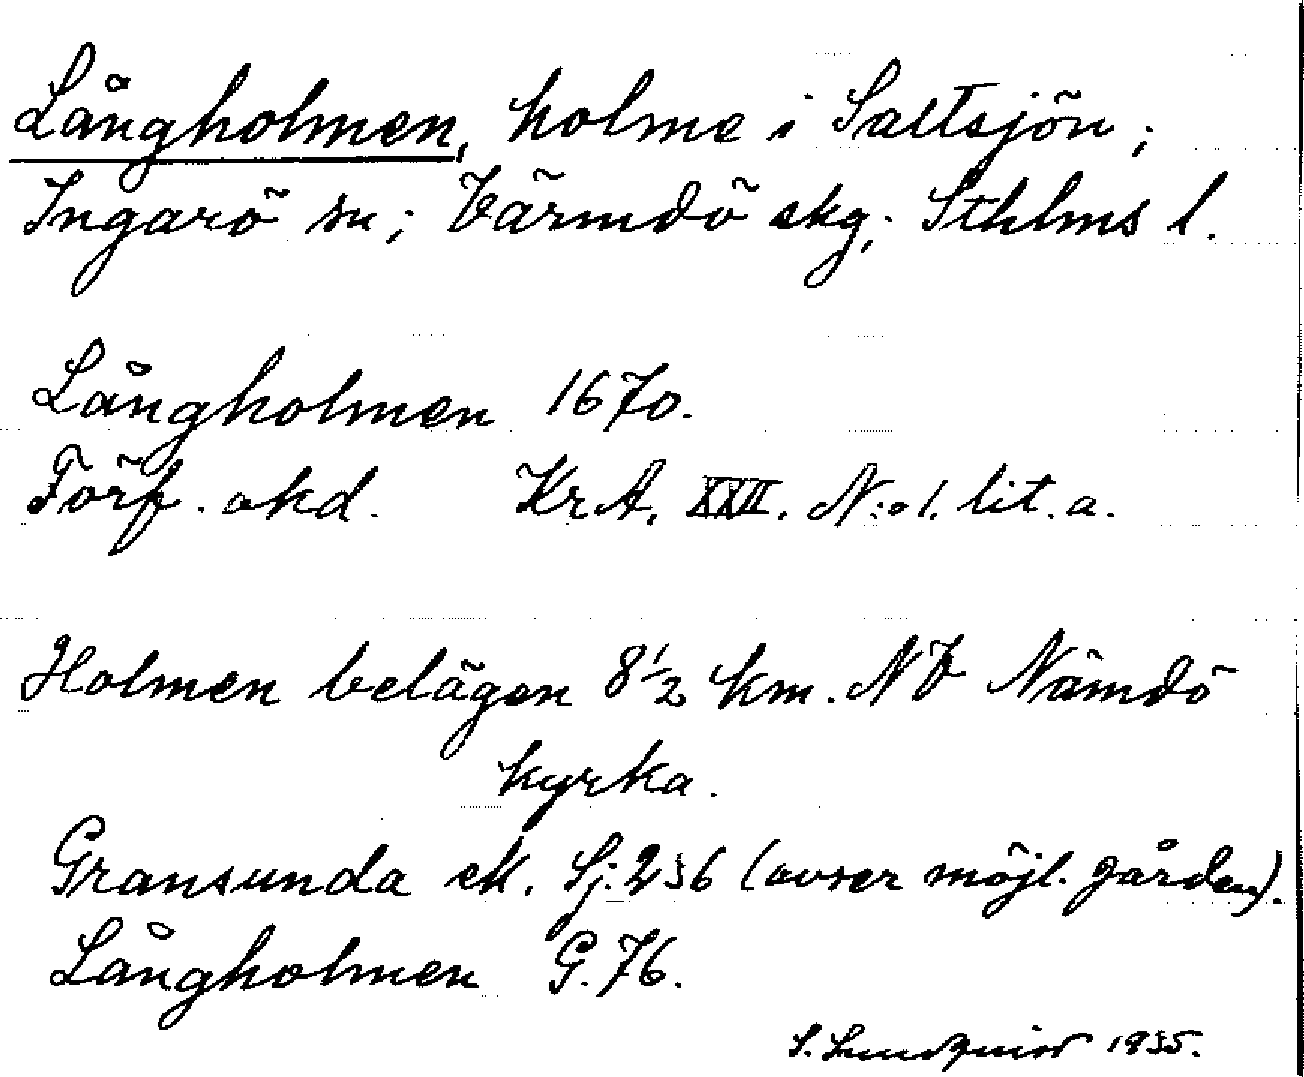 Långholmen, holme i Saltsjön;
Ingarö sn; Värmdö skg; Sthlms l.
Långholmen 1670.
Förf. okd. KrA. XXII. N:o 1. lit. a.
Holmen belägen 8 1/2 km. NV Nämdö
kyrka.
Gransunda sk. Sj. 256 (avser möjl. gården).
Långholmen G. 76.
S. Lundquist 1935.